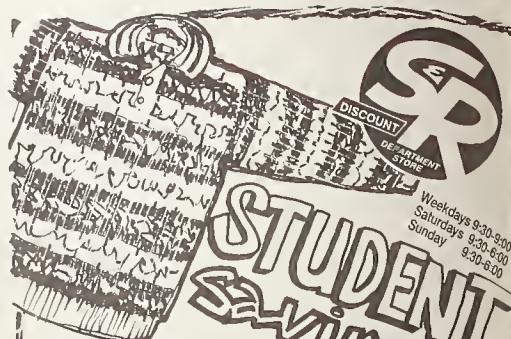 S&R
DISCOUNT
DEPARTMENT
STORE
Weekdays 9:30-9:00
Saturdays 9:30-6:00
Sunday 9:30-6:00
STUDENT